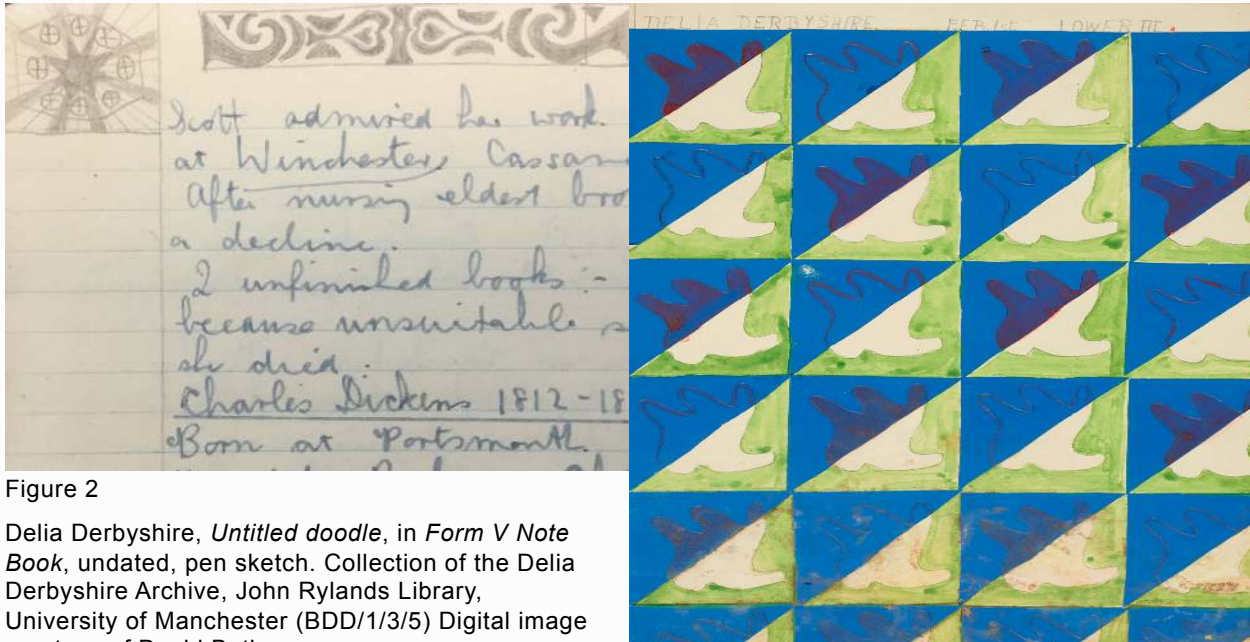 Scott admired her work.
at Winchester, Cassan
After nursing eldest bro
a decline.
2 unfinished books :-
because unsuitable s
she died.
Charles Dickens 1812-18
Born at Portsmouth.
Figure 2
Delia Derbyshire, Untitled doodle, in Form V Note
Book, undated, pen sketch. Collection of the Delia
Derbyshire Archive, John Rylands Library,
University of Manchester (BDD/1/3/5) Digital image
DELIA DERBYSHIRE. LOWER III.